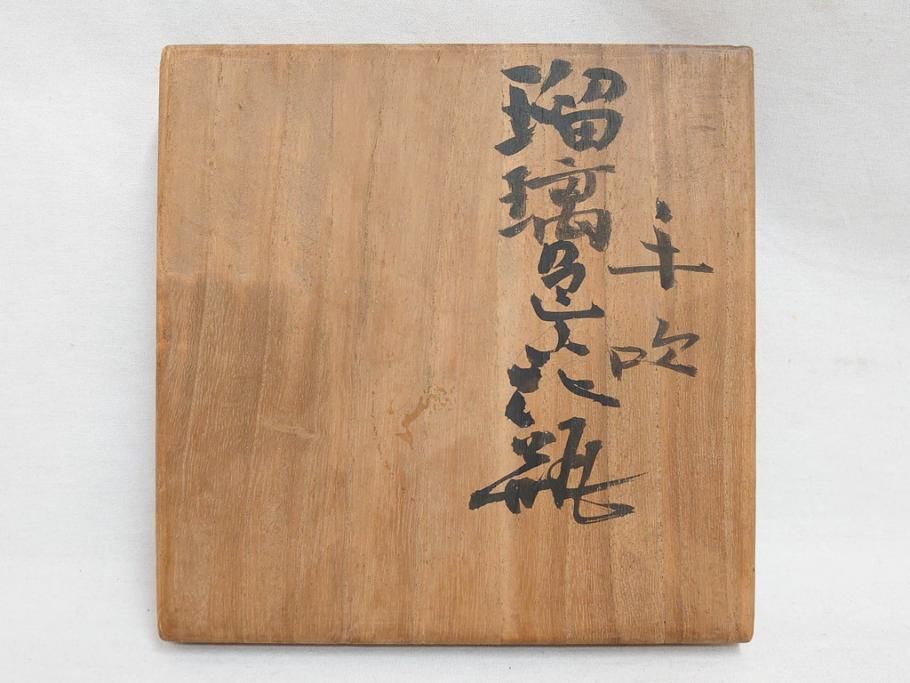 手吹
瑠璃花瓶